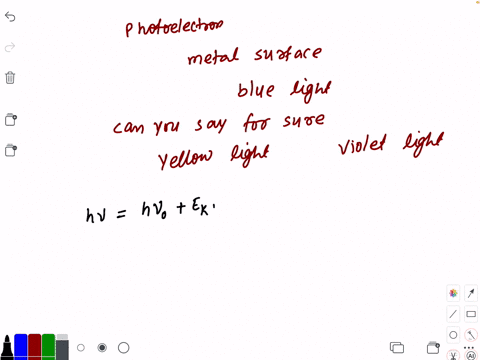 Photoelectron
metal surface
blue light
can you say for sure
yellow light violet light
hν = hν₀ + Eₖ.